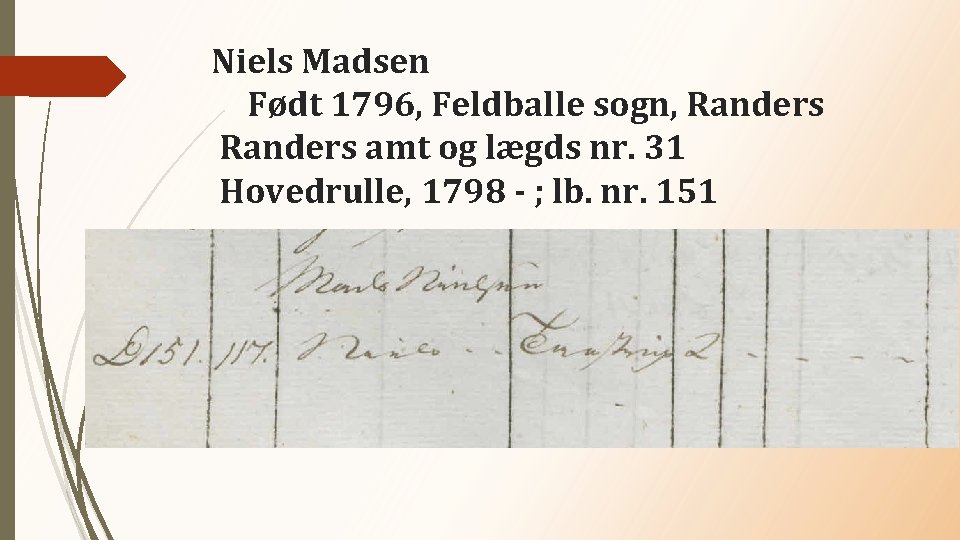 Niels Madsen
Født 1796, Feldballe sogn, Randers
Randers amt og lægds nr. 31
Hovedrulle, 1798 - ; lb. nr. 151
Mads Nielsen
151. 117. Niels - - 2 - - - -